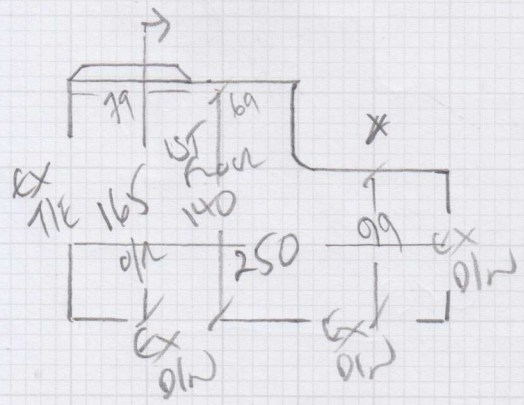 79
69
*
1ST
Floor
EX
T/E
165
O/A
140
99
250
EX
D/W
EX
D/W
EX
D/W